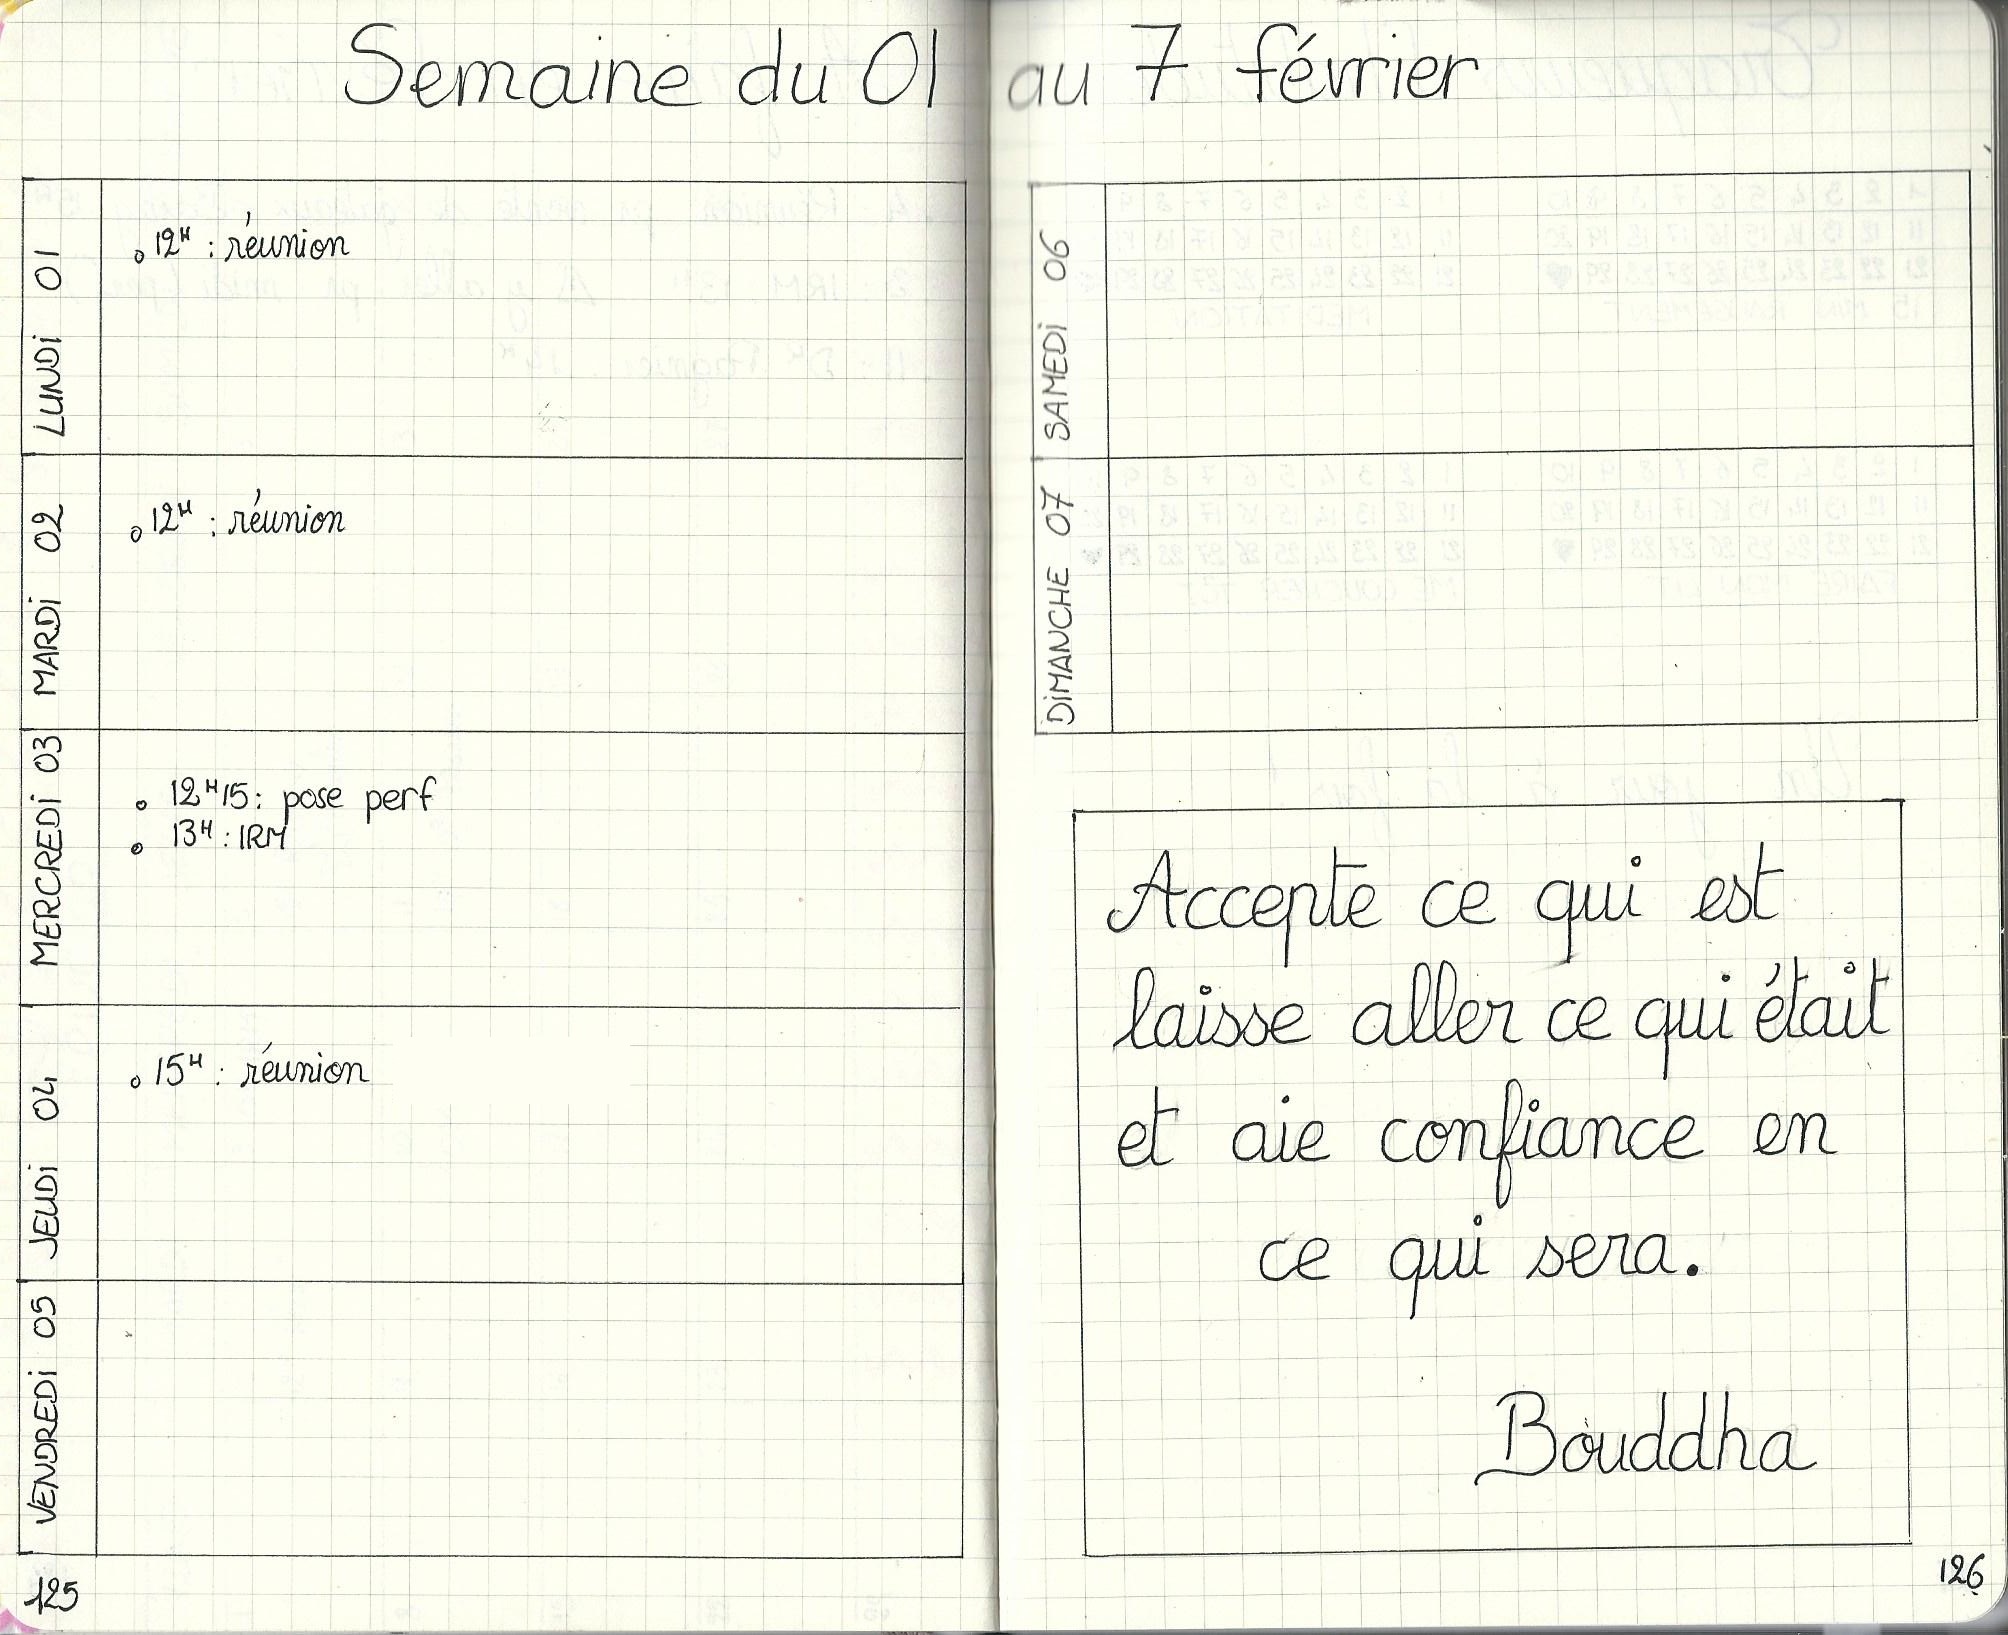 Semaine du 01 au 7 février
LUNDI 01
12H : réunion
MARDI 02
12H : réunion
MERCREDI 03
12H15 : pose perf
13H : IRM
JEUDI 04
15H : réunion
VENDREDI 05
125
SAMEDI 06
DIMANCHE 07
Accepte ce qui est
laisse aller ce qui était
et aie confiance en
ce qui sera.
Bouddha
126